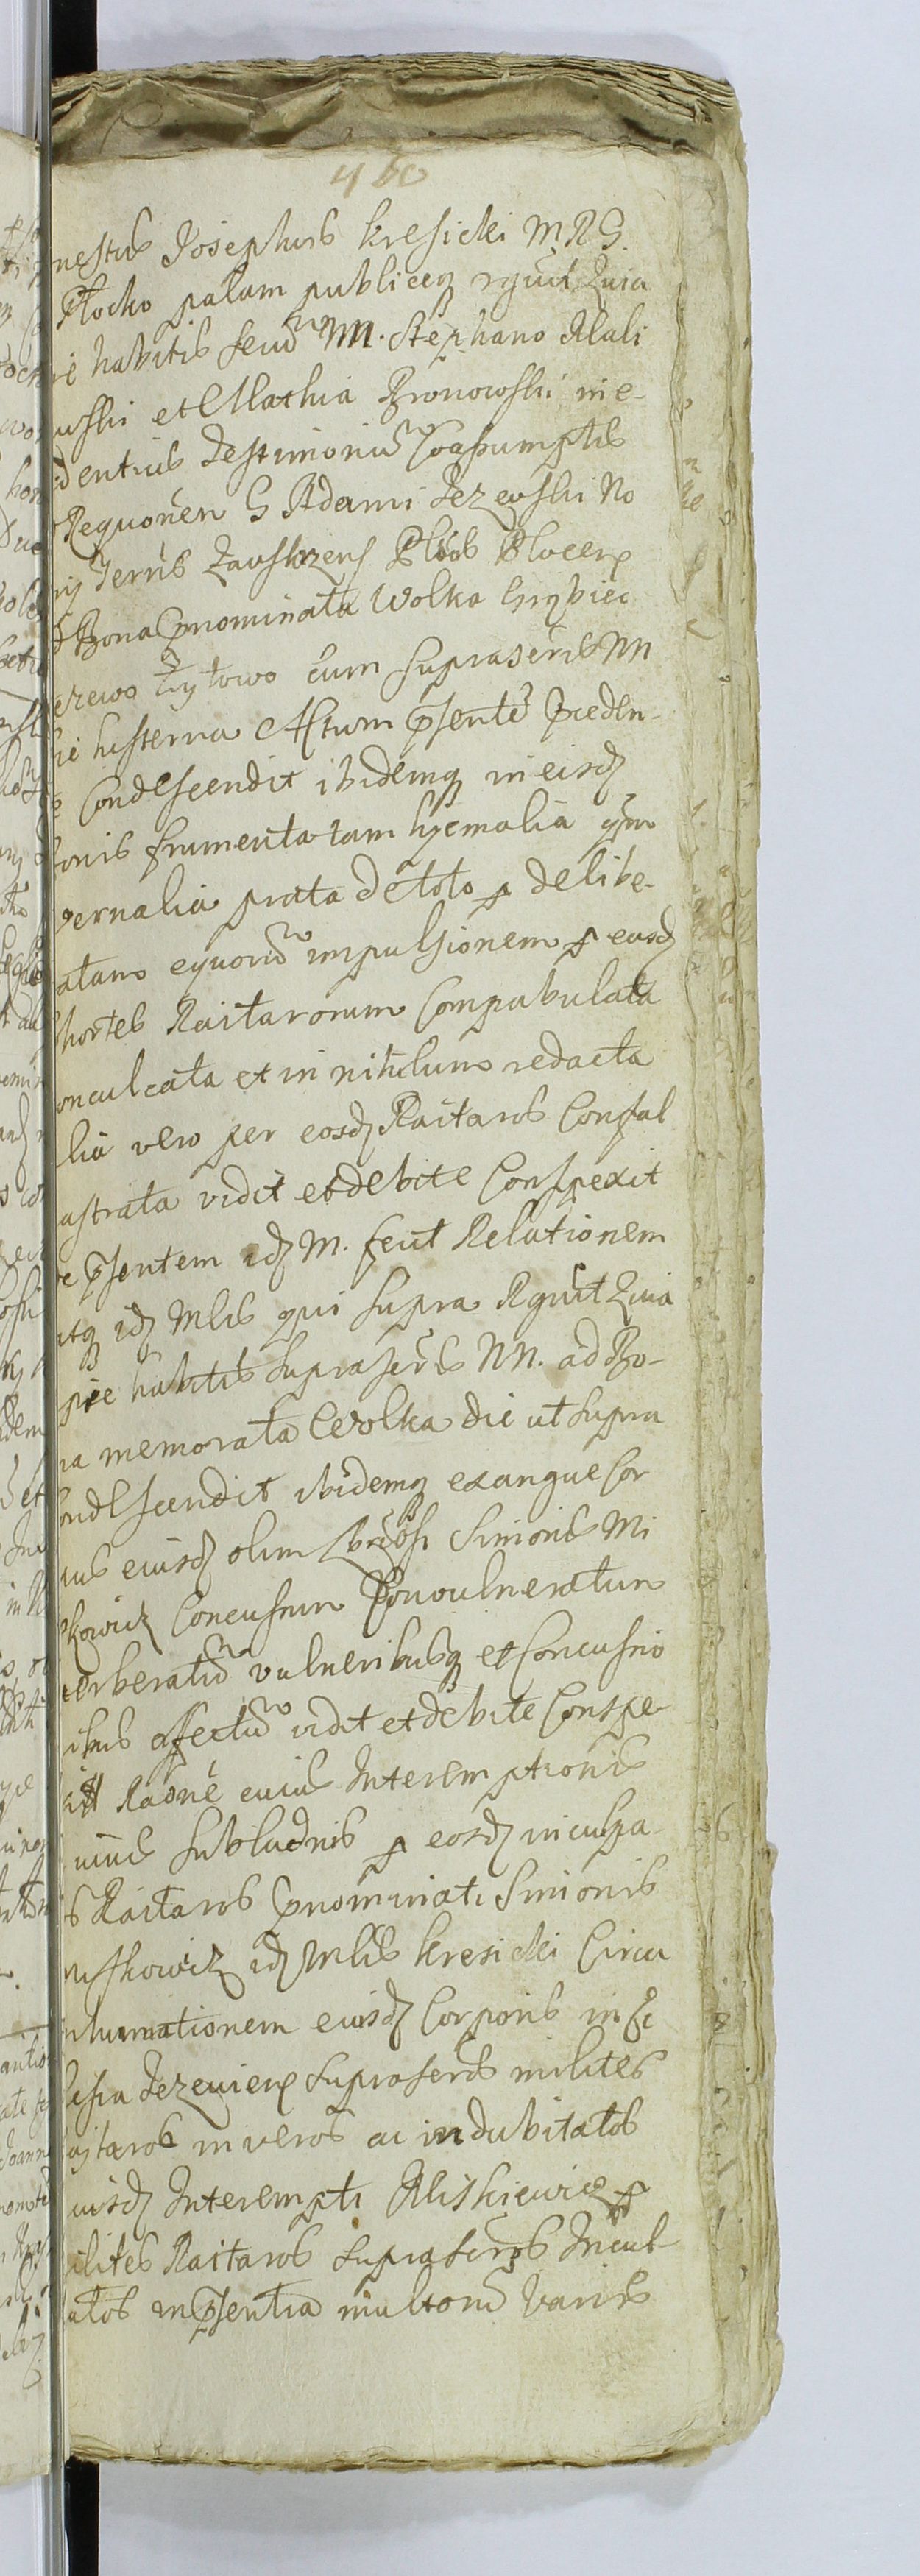 460
nestus Josephus Kresicki M.R.G.
Płocko palam publiceq rgnvit Quia
ie habitis secũ NN. Stephano Mali
uski et Mathia Bronowski ine-
identius Testimoniũ Coassumptis
Requonẽn G Adami Jezewski No
rij Terrũs Zawskrzens Plũs Plocens
Bona pnominata Wolka Grzbiec
erewo Żytowo cum suprascris NN
ie hesterna Actum psentẽ preden-
Condescendit ibidemq in eisd
bonis frumenta tam hyemalia qm
vernalia prata de toto p delibe-
atam equorũ impulsionem p eosd
hortes Raitarorum Compabulata
onculcata et in nihilum redacta
lia vero per eosd Raitaros Consal
astrata vidit et debite Conspexit
e psentem id M. fecit Relationem
itq id Mlis qui supra Rgnvit Quia
pie habitis suprascris NN. ad Bo-
na memorata Wolka die ut supra
ondescendit ibidemq exangue Cor
pus eiusd olim Simonis Mi
kowicz Concussum Convulneratum
erberatũ vulneribusq et Concussio
ibus affectũ vidit et debite Conspe
xit Raõne cuius Interemptionis
p eosd inculpa-
s Raitaros pnominati Simonis
id Mlis Kresicki Circa
nhumationem eiusd Corporis in Ec
lesia Jezeviens suprascros milites
aytaros in veros ac indubitatos
uisd Interempti Miskiewicz p
ilites Raitaros suprascros Incul-
atos in psentia multorũ Varijs